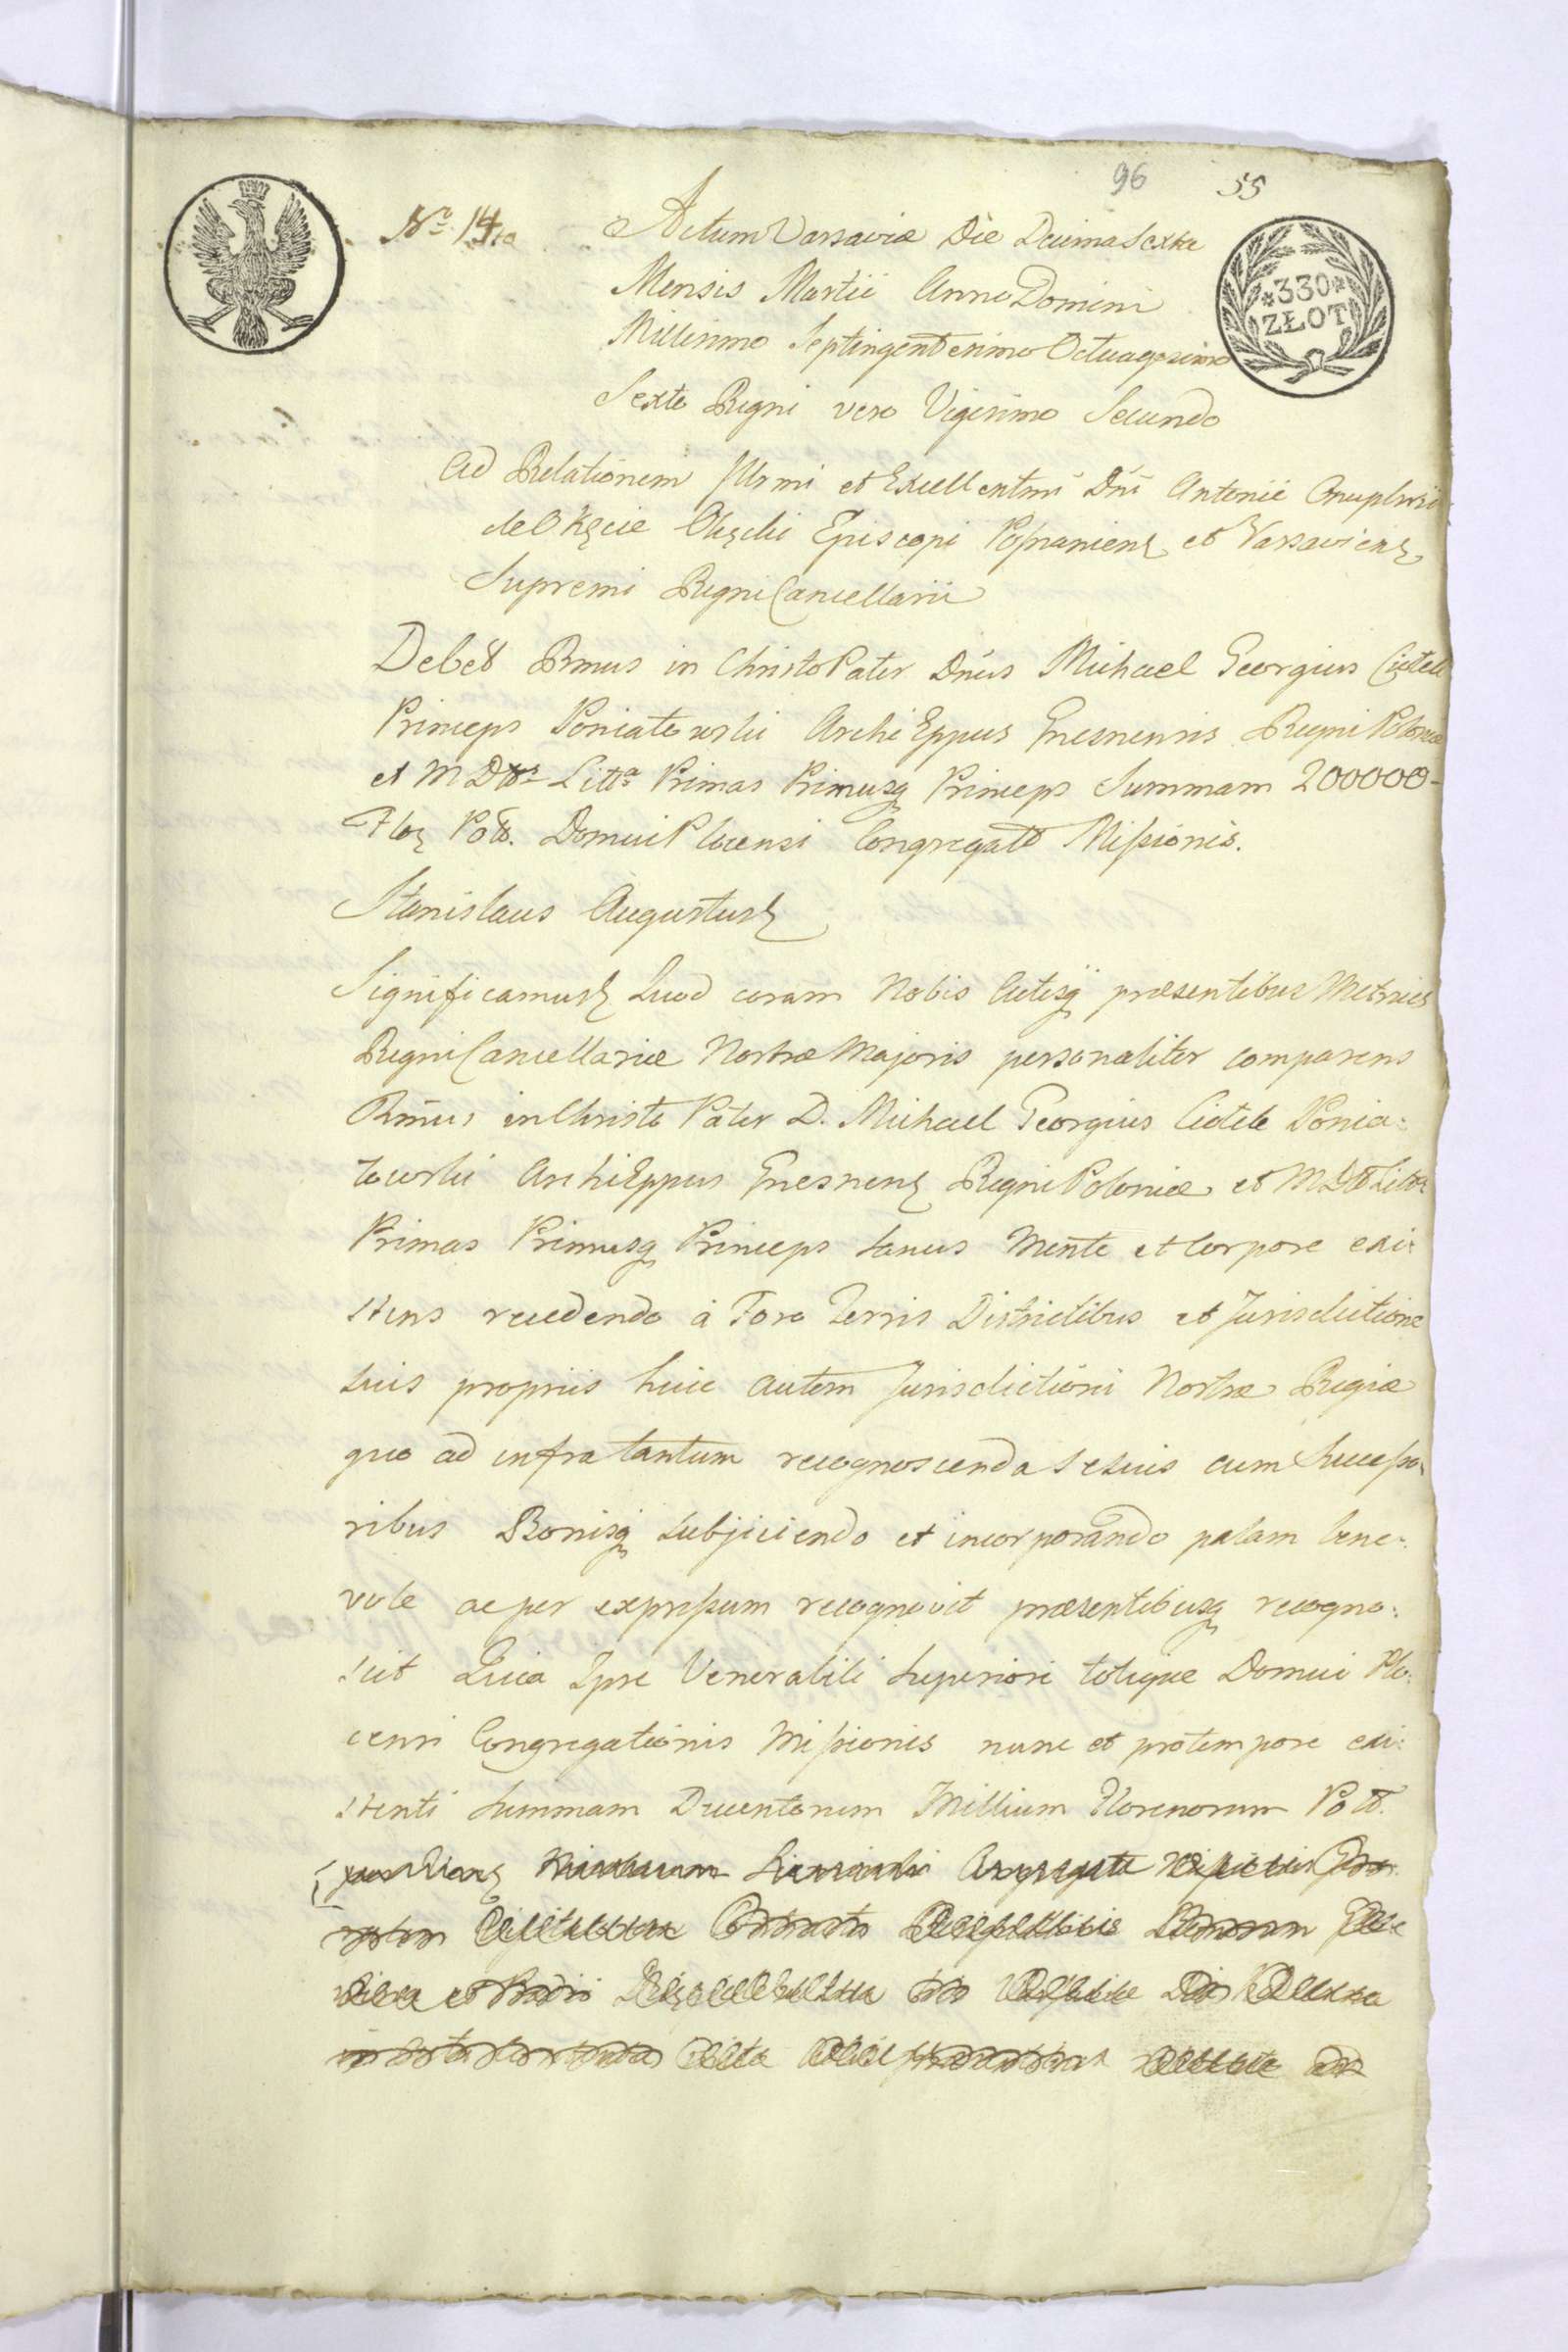 96 55
No. 14
Actum Varsaviæ Die Decima Sexta
Mensis Martii Anno Domini
*330*
ZŁOT
Millesimo Septingentesimo Octuagesimo
Sexto Regni vero Vigesimo Secundo
Ad Relationem Illrmi et Excellentmi Dni Antonii Onuphrii
de Okęcie Okęcki Episcopi Posnaniens et Varsaviens
Supremi Regni Cancellarii
Debet Rmus in Christo Pater Dnus Michael Georgius Ciołek
Princeps Poniatowski ArchiEppus Gnesnensis Regni Poloniæ
et M D Litt Primas Primusq Princeps Summam 200000
Flor Poll. Domui Plocensi Congregatt Missionis.
Stanislaus Augustus
Significamus Quod coram Nobis Actisq præsentibus Metrices
Regni Cancellariæ Nostræ Majoris personaliter comparens
Rmus in Christo Pater D. Michael Georgius Ciołek Ponia:
towski ArchiEppus Gnesnens Regni Poloniæ et M D Litt
Primas Primusq Princeps sanus Mente et Corpore exi:
stens recedendo à Foro Terris Districtibus et Jurisdictione
suis propriis huic autem Jurisdictioni Nostræ Regiæ
quo ad infra tantum recognoscenda se suis cum Successo:
ribus Bonisq subjiciendo et incorporando palam bene:
vole ac per expressum recognovit præsentibusq recogno:
scit Quia Ipse Venerabili Superiori totique Domui Plo:
censi Congregationis Missionis nunc et protempore exi:
stenti Summam Ducentorum Millium Florenorum Poll.